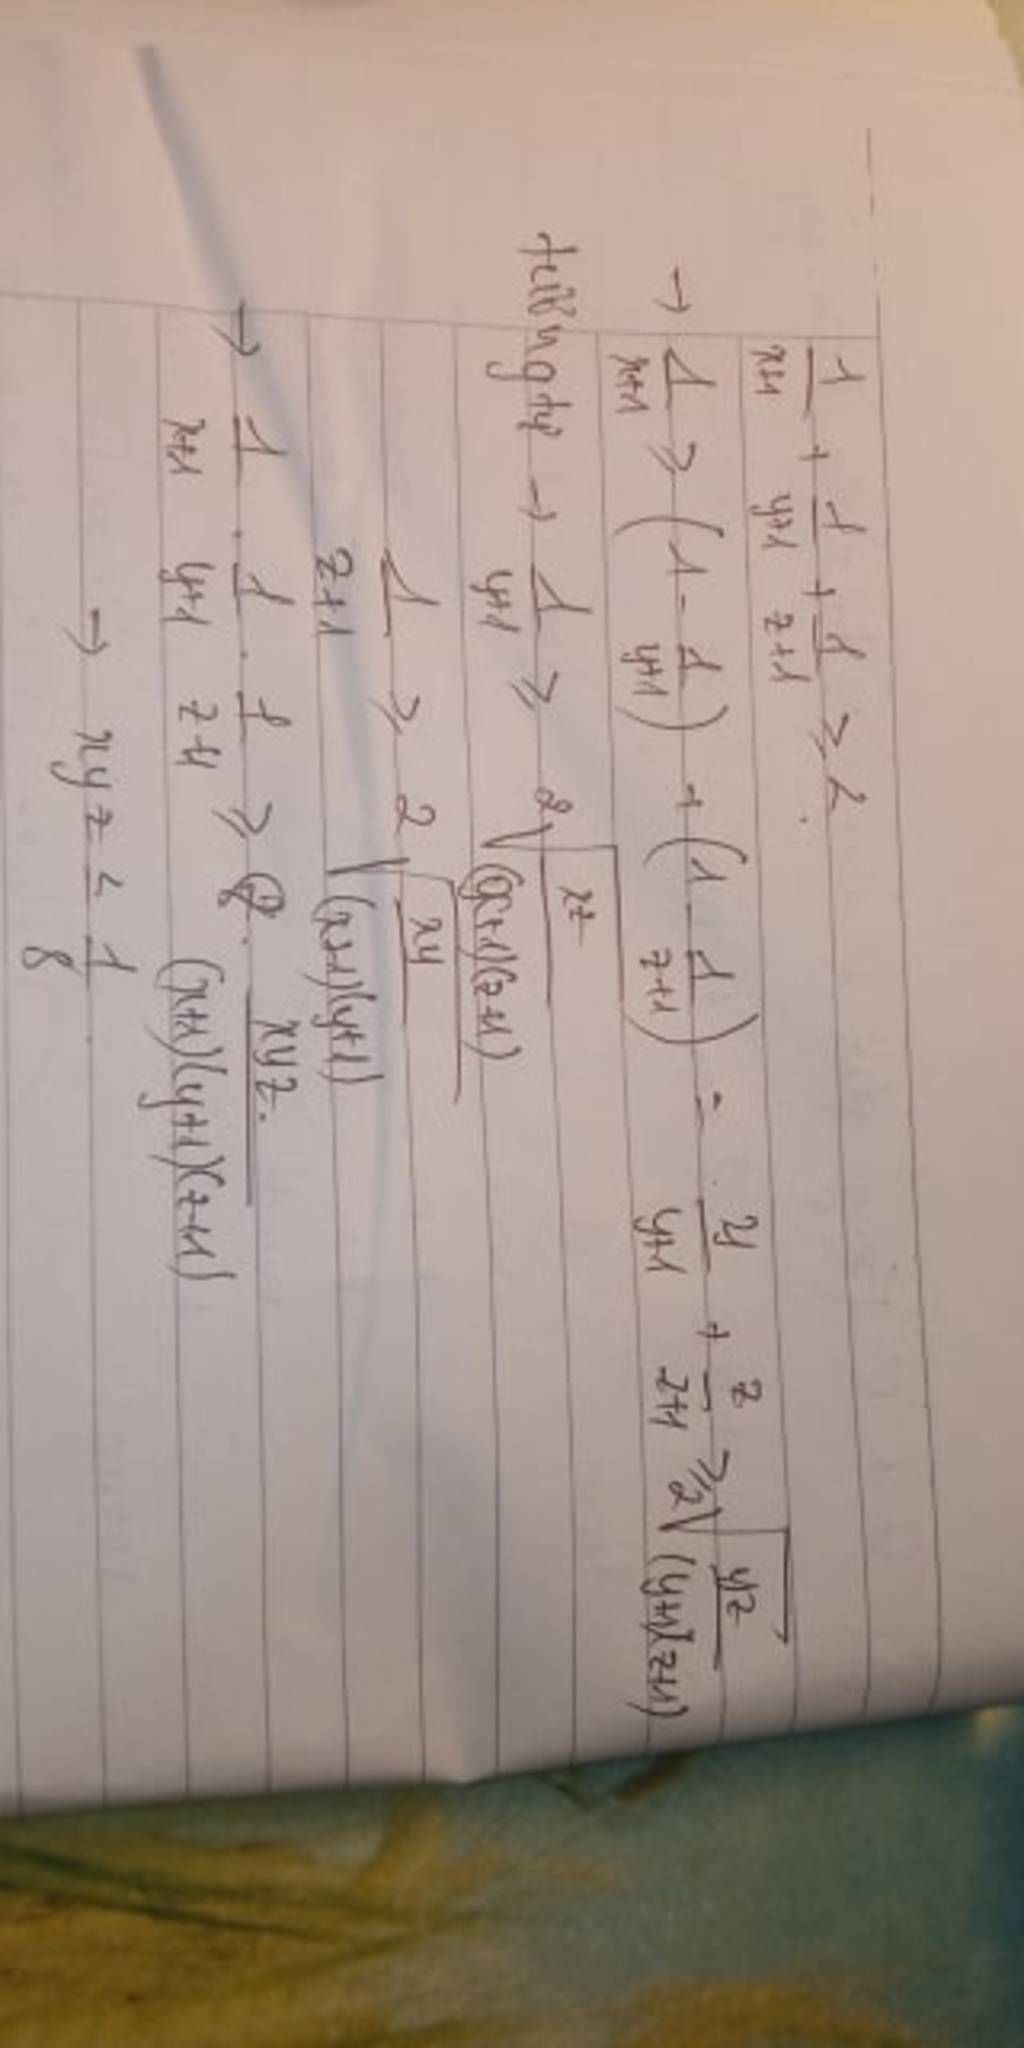 1/(x+1) + 1/(y+1) + 1/(z+1) ≥ 2.
→ 1/(x+1) ≥ (1 - 1/(y+1)) + (1 - 1/(z+1)) = y/(y+1) + z/(z+1) ≥ 2√(yz/((y+1)(z+1)))
→ 1/(y+1) ≥ 2√(xz/((x+1)(z+1)))
1/(z+1) ≥ 2√(xy/((x+1)(y+1)))
→ 1/(x+1) . 1/(y+1) . 1/(z+1) ≥ 8. xyz/((x+1)(y+1)(z+1))
→ xyz ≤ 1/8.